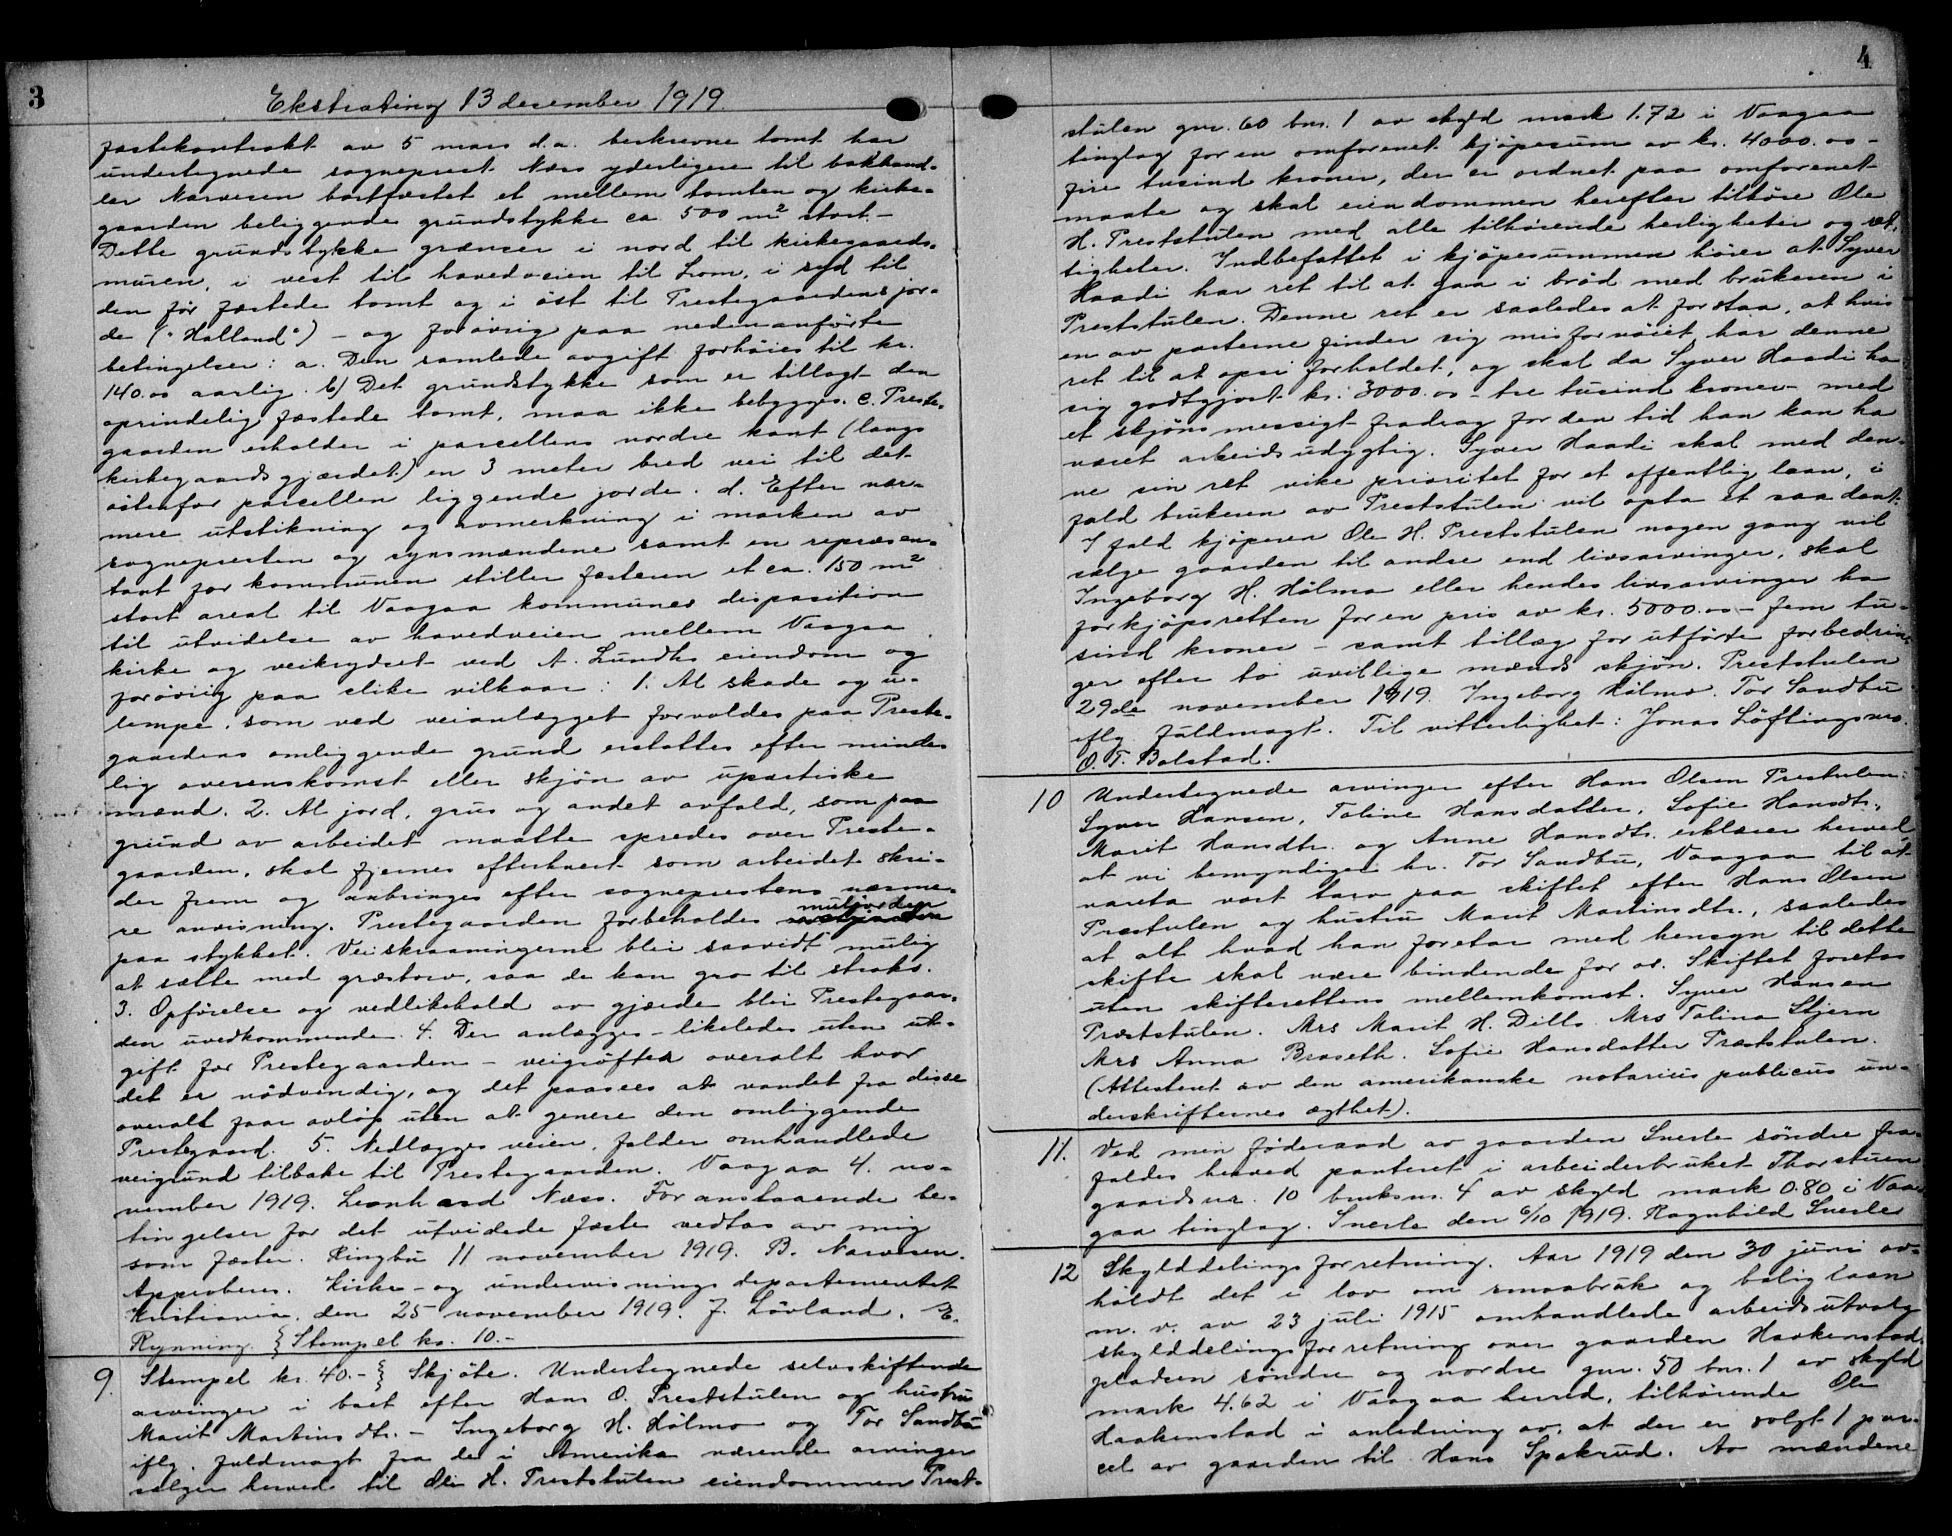 3
Ekstrating 13 desember 1919
fæstekontrakt av 5 mars d.a. beskrevne tomt har
undertegnede sogneprest Næss yderligere til bokhand-
ler Narvesen bortfæstet et mellem tomten og kirke-
gaarden beliggende grundstykke ca 500 m² stort. -
Dette grundstykke grænser i nord til kirkegaards-
muren, i vest til hovedveien til Lom, i syd til
den før fæstede tomt og i øst til Prestegaardens jor-
de ("Halland") - og forøvrig paa nedenanførte
betingelser: a. Den samlede avgift forhøies til kr.
140.oo aarlig. b) Det grundstykke som er tillagt den
oprindelig fæstede tomt, maa ikke bebygges. c. Preste-
gaarden erholder i parcellens nordre kant (langs
kirkegaardsgjærdet) en 3 meter bred vei til det
østenfor parcellen liggende jorde. d. Efter nær-
mere utstikning og avmerkning i marken av
sognepresten og synsmændene samt en repræsen-
tant for kommunen stiller fæsteren et ca. 150 m²
stort areal til Vaagaa kommunes disposition
til utvidelse av hovedveien mellem Vaagaa
kirke og veikrydset ved A. Lundhs eiendom og
forøvrig paa slike vilkaar: 1. Al skade og u-
lempe, som ved veianlægget forvoldes paa Preste-
gaardens omliggende grund erstattes efter minde-
lig overenskomst eller skjøn av upartiske
mænd. 2. Al jord, grus og andet avfald, som paa
grund av arbeidet maatte spredes over Preste-
gaarden, skal fjernes efterhvert som arbeidet skri-
der frem og anbringes efter sogneprestens nærme-
re anvisning. Prestegaarden forbeholdes muljorden
paa stykket. Veiskraaningerne blir saavidt mulig
at sætte med græstorv, saa de kan gro til straks.
3. Opførelse og vedlikehold av gjærde blir Prestegaar-
den uvedkommende. 4. Der anlægges - likeledes uten ut-
gift for Prestegaarden - veigrøfter overalt hvor
det er nødvendig, og det paasees at vandet fra disse
overalt faar avløp uten at genere den omliggende
Prestegaard. 5. Nedlægges veien, falder omhandlede
veigrund tilbake til Prestegaarden. Vaagaa 4. no-
vember 1919. Leonhard Næss. Foranstaaende be-
tingelser for det utvidede fæste vedtas av mig
som fæster. Ringbu 11 november 1919. B. Narvesen.
Approberes. Kirke- og undervisningsdepartementet
Kristiania, den 25 november 1919. J. Løvland. E.
Rynning. { Stempel kr. 10.-
9. Stempel kr. 40.- } Skjøte. Undertegnede selvskiftende
arvinger i boet efter Hans O. Preststulen og hustru
Marit Martinsdtr. - Ingeborg H. Hølmo og Tor Sandbu
iflg. fuldmagt fra de i Amerika værende arvinger
sælger herved til Ole H. Preststulen eiendommen Prest-
4
stulen gnr. 60 bnr. 1 av skyld mark 1.72 i Vaagaa
tinglag for en omforenet kjøpesum av kr. 4000.oo -
fire tusind kroner, der er ordnet paa omforenet
maate og skal eiendommen herefter tilhøre Ole
H. Preststulen med alle tilhørende herligheter og ret-
tigheter. Indbefattet i kjøpesummen hører at Syver
Haadi har ret til at gaa i brød med brukeren i
Preststulen. Denne ret er saaledes at forstaa, at hvis
en av parterne finder sig misfornøiet, har denne
ret til at opsi forholdet, og skal da Syver Haadi ha
sig godtgjort kr. 3000.oo - tre tusind kroner - med
et skjønsmessigt fradrag for den tid han kan ha
været arbeidsudygtig. Syver Haadi skal med den-
ne sin ret vike prioritet for et offentlig laan, i
fald brukeren av Preststulen vil opta et saadant.
I fald kjøperen Ole H. Preststulen nogen gang vil
sælge gaarden til andre end livsarvinger, skal
Ingeborg H. Hølmo eller hendes livsarvinger ha
forkjøpsretten for en pris av kr. 5000.oo - fem tu-
sind kroner - samt tillæg for utførte forbedrin-
ger efter to uvillige mænds skjøn. Preststulen
29de november 1919. Ingeborg Hølmo. Tor Sandbu
iflg. fuldmagt. Til vitterlighet: Jonas Løftingsmo.
O. T. Bolstad.
10 Undertegnede arvinger efter Hans Olsen Prestulen:
Syver Hansen, Toline Hansdatter, Sofie Hansdtr.,
Marit Hansdtr. og Anne Hansdtr. erklærer herved
at vi bemyndiger hr. Tor Sandbu, Vaagaa til at
vareta vort tarv paa skiftet efter Hans Olsen
Præstulen og hustru Marit Martinsdtr., saaledes
at alt hvad han foretar med hensyn til dette
skifte skal være bindende for os. Skiftet foretas
uten skifterettens mellemkomst. Syver Hansen
Præststulen. Mrs Marit H. Dills. Mrs Tolina Stjern
Mrs Anna Braseth. Sofie Hansdatter Præststulen.
(Attestert av den amerikanske notarius publicus un-
derskrifternes ægthet).
11. Ved min føderaad av gaarden Snerle søndre fra-
faldes herved panteret i arbeiderbruket Thorstuen
gaardsnr. 10 bruksnr. 4 av skyld mark 0.80 i Vaa-
gaa tinglag. Snerle den 6/10 1919. Ragnhild Snerle
12 Skylddelingsforretning. Aar 1919 den 30 juni av-
holdt det i lov om smaabruk og boliglaan
m. v. av 23 juli 1915 omhandlede arbeidsutvalg
skylddelingsforretning over gaarden Haakenstad-
pladsen søndre og nordre gnr. 50 bnr. 1 av skyld
mark 4.62 i Vaagaa herred, tilhørende Ole
Haakenstad i anledning av, at der er solgt 1 par-
cel av gaarden til Hans Spakrud. Av mændene